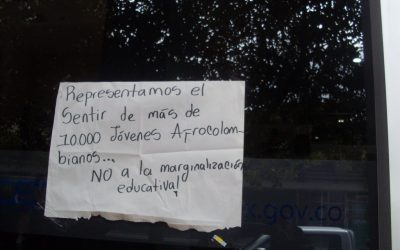 Representamos el
Sentir de más de
10.000 Jóvenes Afrocolom-
bianos...
NO a la marginalización
educativa!
x.gov.co